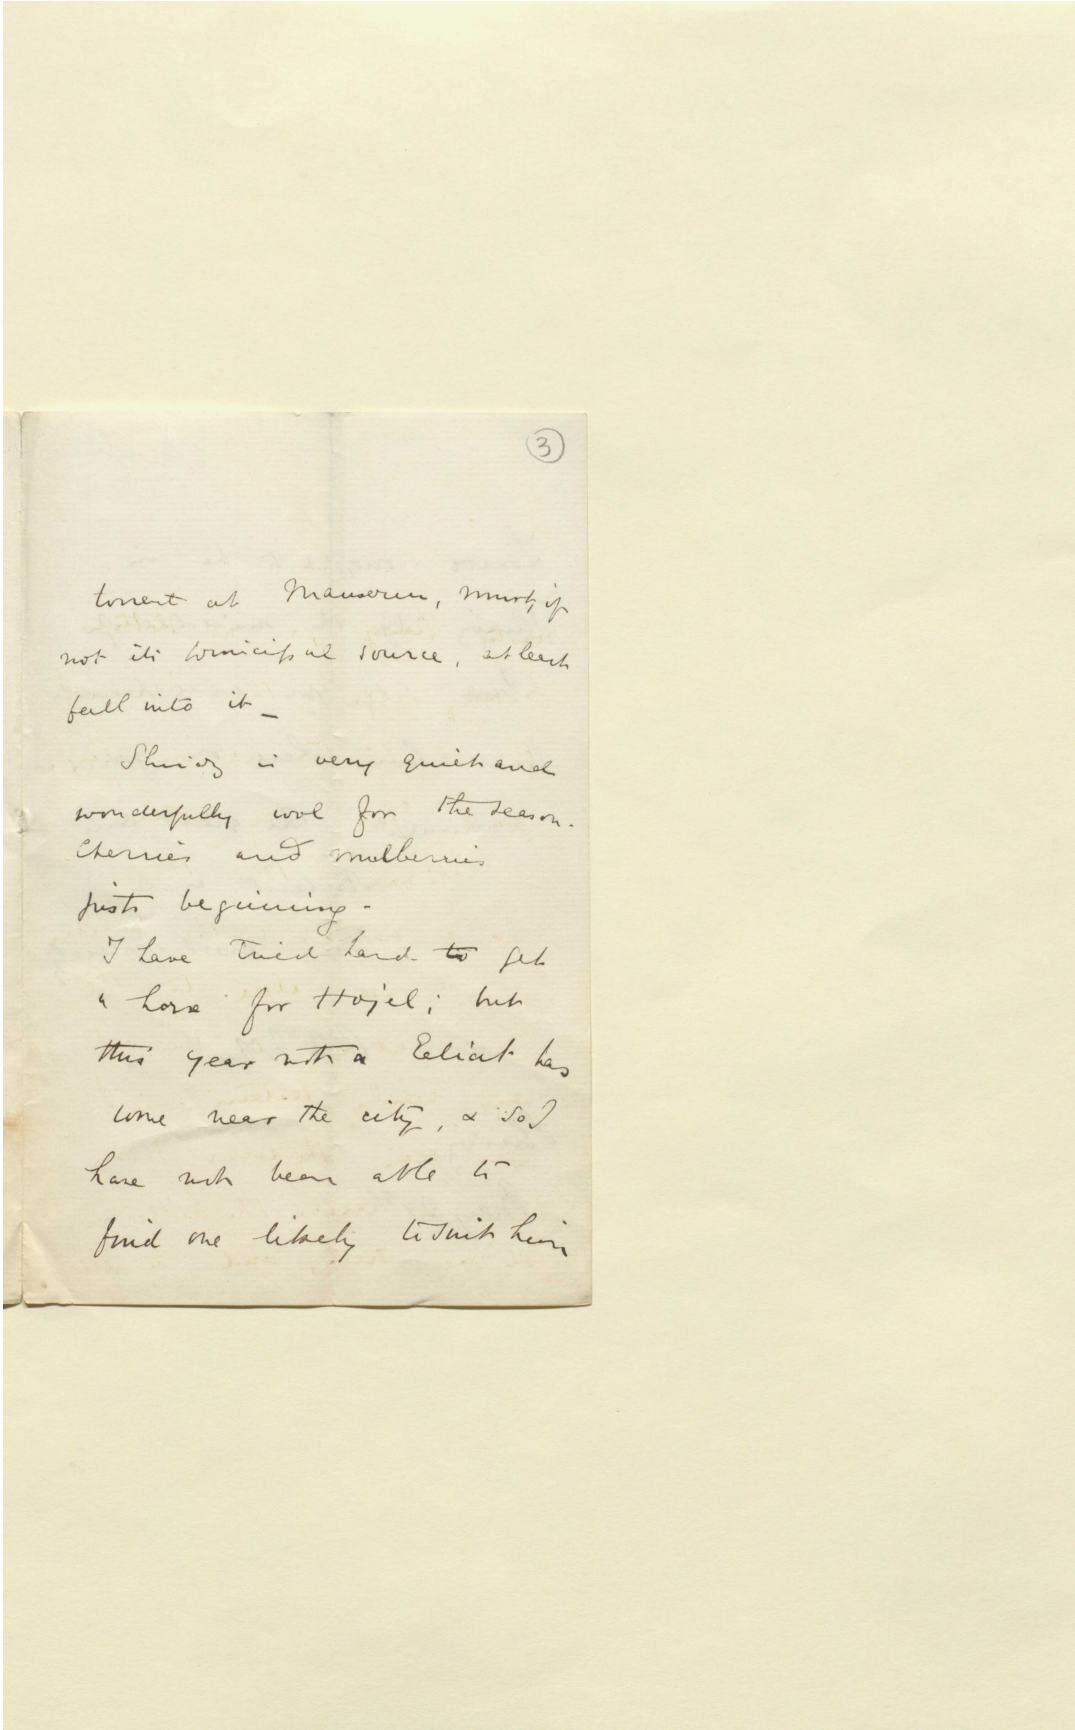 3
torrent at Manserem, must, if
not its principal source, at least
fall into it _
Shiraz is very quiet and
wonderfully cool for the season.
Cherries and mulberries
just beginning -
I have tried hard to get
a horse for Hojel; but
this year not a Eeliat has
come near the city, & so I
have not been able to
find one likely to suit him